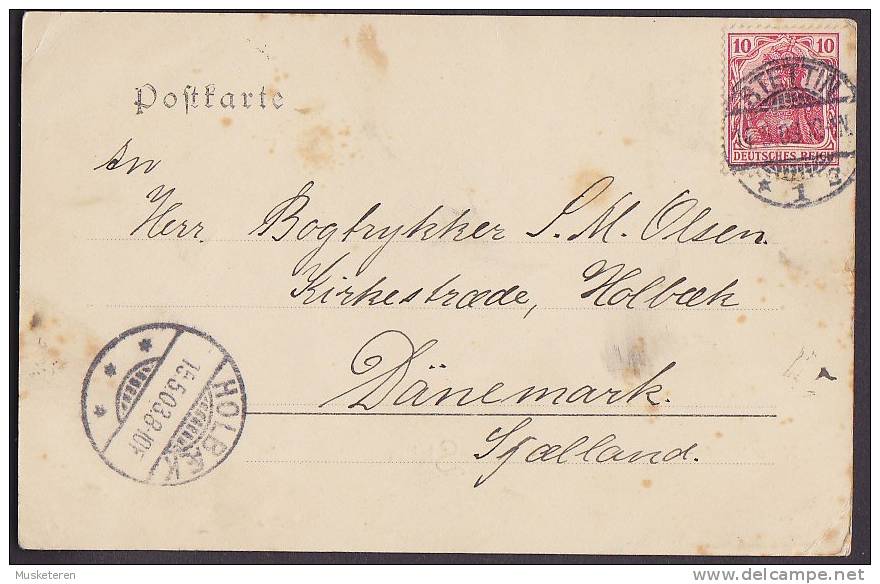 10 10
DEUTSCHES REICH
STETTIN
1 2
Postkarte
An
Herr. Bogtrykker S. M. Olsen.
Kirkestræde, Holbæk
Dänemark.
Sjælland.
HOLBÆK
15.5.03.8-10F
Musketeren
delcampe.net